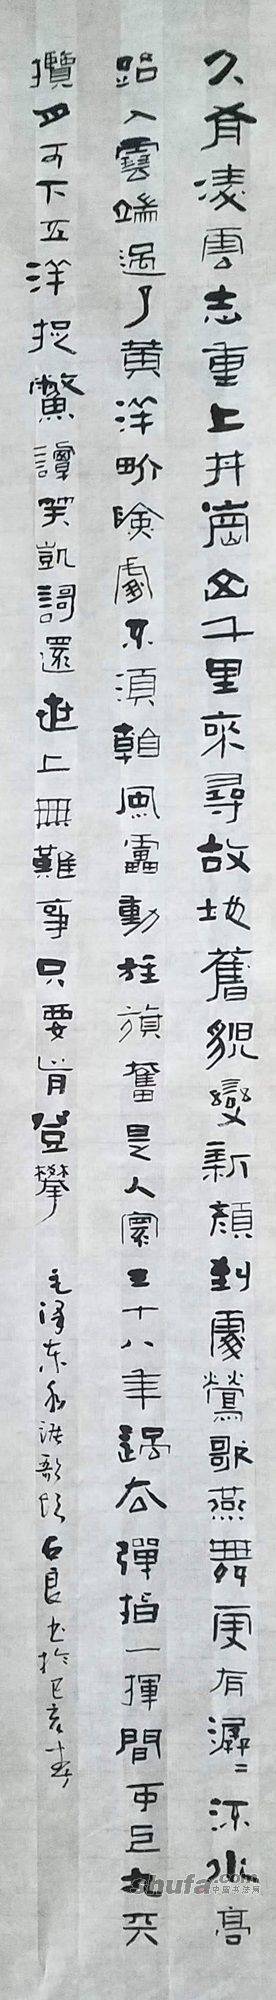 久有凌雲志重上井崗山千里來尋故地舊貌變新顔到處鶯歌燕舞更有潺〻流水高
路入雲端過了黄洋界險處不須看風雷動旌旗奮是人寰三十八年過去彈指一揮間可上九天
攬月可下五洋捉鱉談笑凱歌還世上無難事只要肯登攀
毛澤東水調歌頭 石良书於己亥春
shufa.com
中国书法网